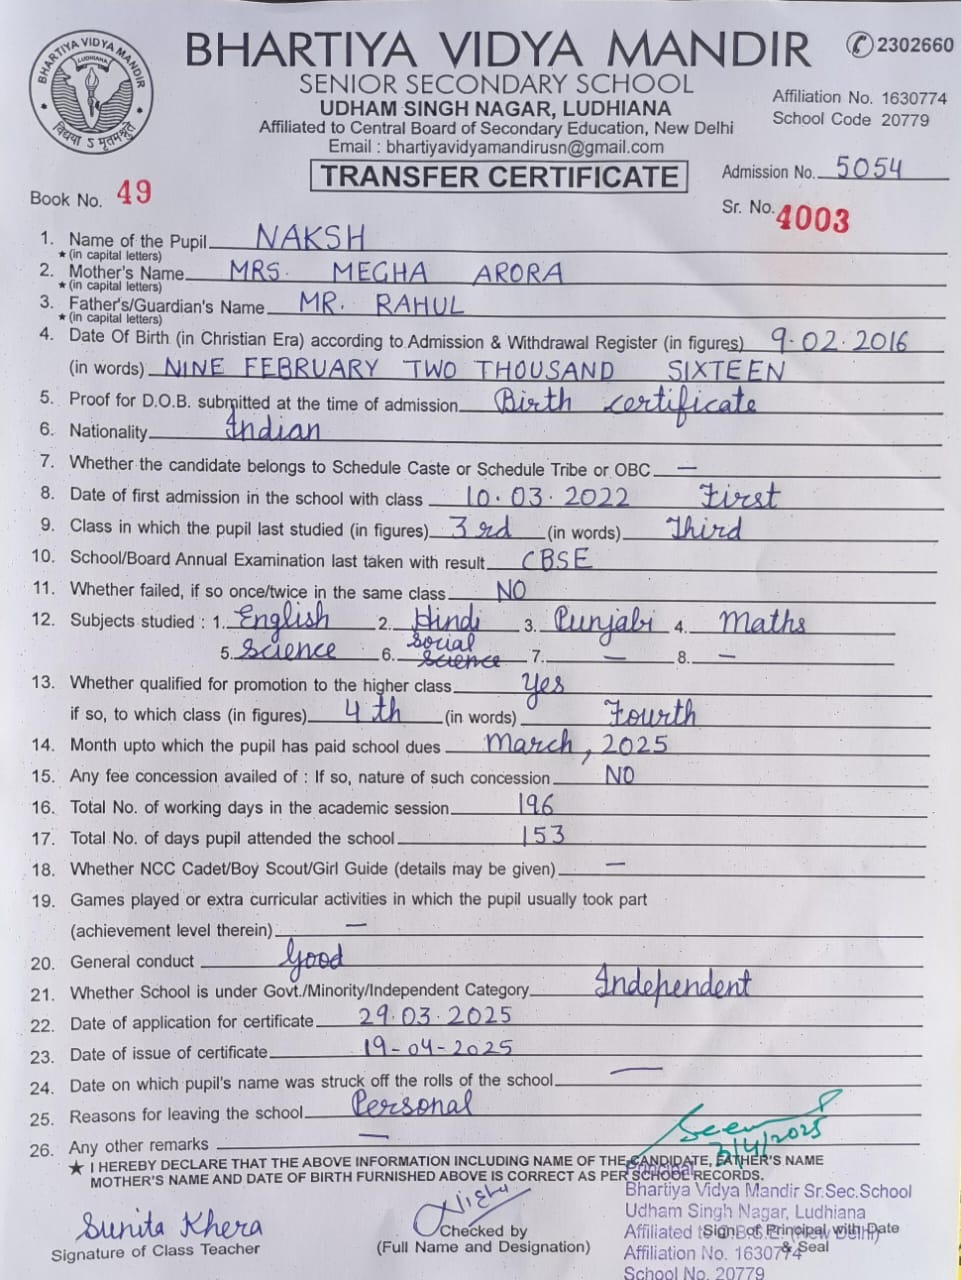 BHARTIYA VIDYA MANDIR
LUDHIANA
विद्यया ऽ मृतमश्नुते
BHARTIYA VIDYA MANDIR ✆2302660
SENIOR SECONDARY SCHOOL
UDHAM SINGH NAGAR, LUDHIANA
Affiliated to Central Board of Secondary Education, New Delhi
Email : bhartiyavidyamandirusn@gmail.com
Affiliation No. 1630774
School Code 20779
TRANSFER CERTIFICATE
Admission No. 5054
Book No. 49
Sr. No. 4003
1. Name of the Pupil NAKSH
★ (in capital letters)
2. Mother's Name MRS. MEGHA ARORA
★ (in capital letters)
3. Father's/Guardian's Name MR. RAHUL
★ (in capital letters)
4. Date Of Birth (in Christian Era) according to Admission & Withdrawal Register (in figures) 9.02.2016
(in words) NINE FEBRUARY TWO THOUSAND SIXTEEN
5. Proof for D.O.B. submitted at the time of admission Birth certificate
6. Nationality Indian
7. Whether the candidate belongs to Schedule Caste or Schedule Tribe or OBC —
8. Date of first admission in the school with class 10.03.2022 First
9. Class in which the pupil last studied (in figures) 3rd (in words) Third
10. School/Board Annual Examination last taken with result CBSE
11. Whether failed, if so once/twice in the same class NO
12. Subjects studied : 1. English 2. Hindi 3. Punjabi 4. Maths
5. Science 6. Social Science 7. — 8. —
13. Whether qualified for promotion to the higher class yes
if so, to which class (in figures) 4th (in words) Fourth
14. Month upto which the pupil has paid school dues March, 2025
15. Any fee concession availed of : If so, nature of such concession NO
16. Total No. of working days in the academic session 196
17. Total No. of days pupil attended the school 153
18. Whether NCC Cadet/Boy Scout/Girl Guide (details may be given) —
19. Games played or extra curricular activities in which the pupil usually took part
(achievement level therein) —
20. General conduct Good
21. Whether School is under Govt./Minority/Independent Category Independent
22. Date of application for certificate 29.03.2025
23. Date of issue of certificate 19-04-2025
24. Date on which pupil's name was struck off the rolls of the school —
25. Reasons for leaving the school Personal
26. Any other remarks —
★ I HEREBY DECLARE THAT THE ABOVE INFORMATION INCLUDING NAME OF THE CANDIDATE, FATHER'S NAME
MOTHER'S NAME AND DATE OF BIRTH FURNISHED ABOVE IS CORRECT AS PER SCHOOL RECORDS.
Sunita Khera
Signature of Class Teacher
Checked by
(Full Name and Designation)
Principal
Bhartiya Vidya Mandir Sr.Sec.School
Udham Singh Nagar, Ludhiana
Sign. of Principal with Date
& Seal
Affiliation No. 1630774
School No. 20779